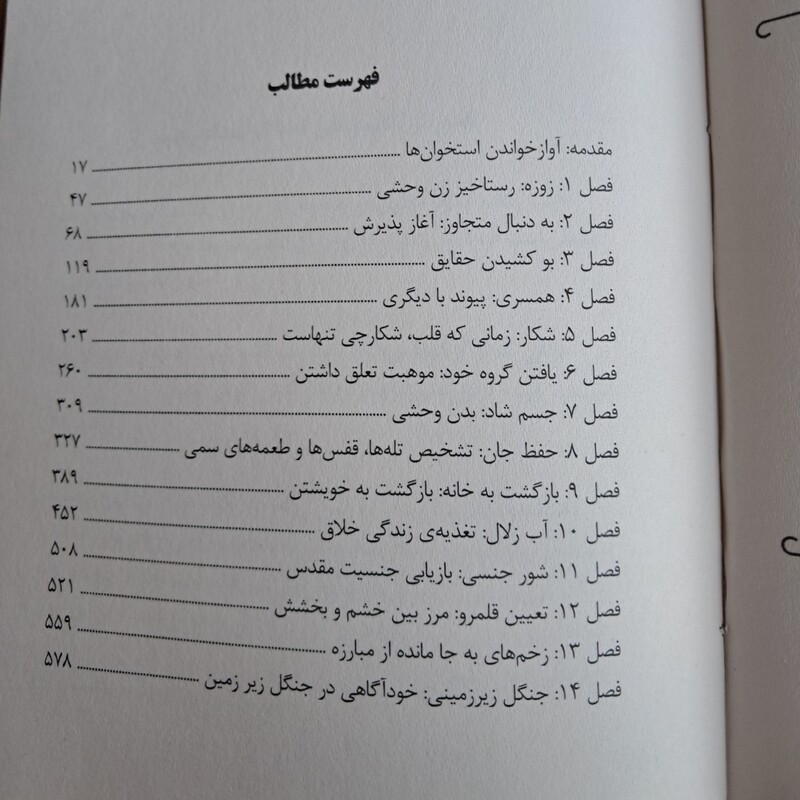 فهرست مطالب
مقدمه: آوازخواندن استخوان‌ها ۱۷
فصل ۱: زوزه: رستاخیز زن وحشی ۴۷
فصل ۲: به دنبال متجاوز: آغاز پذیرش ۶۸
فصل ۳: بو کشیدن حقایق ۱۱۹
فصل ۴: همسری: پیوند با دیگری ۱۸۱
فصل ۵: شکار: زمانی که قلب، شکارچی تنهاست ۲۰۳
فصل ۶: یافتن گروه خود: موهبت تعلق داشتن ۲۶۰
فصل ۷: جسم شاد: بدن وحشی ۳۰۹
فصل ۸: حفظ جان: تشخیص تله‌ها، قفس‌ها و طعمه‌های سمی ۳۲۷
فصل ۹: بازگشت به خانه: بازگشت به خویشتن ۳۸۹
فصل ۱۰: آب زلال: تغذیه‌ی زندگی خلاق ۴۵۲
فصل ۱۱: شور جنسی: بازیابی جنسیت مقدس ۵۰۸
فصل ۱۲: تعیین قلمرو: مرز بین خشم و بخشش ۵۲۱
فصل ۱۳: زخم‌های به جا مانده از مبارزه ۵۵۹
فصل ۱۴: جنگل زیرزمینی: خودآگاهی در جنگل زیر زمین ۵۷۸